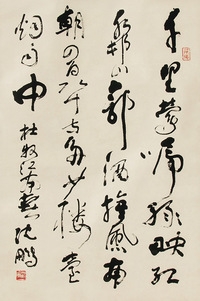 千里鶯啼緑映紅
水邨山郭酒旗風南
朝四百八十寺多少樓臺
烟雨中 杜牧江南春 沈鵬